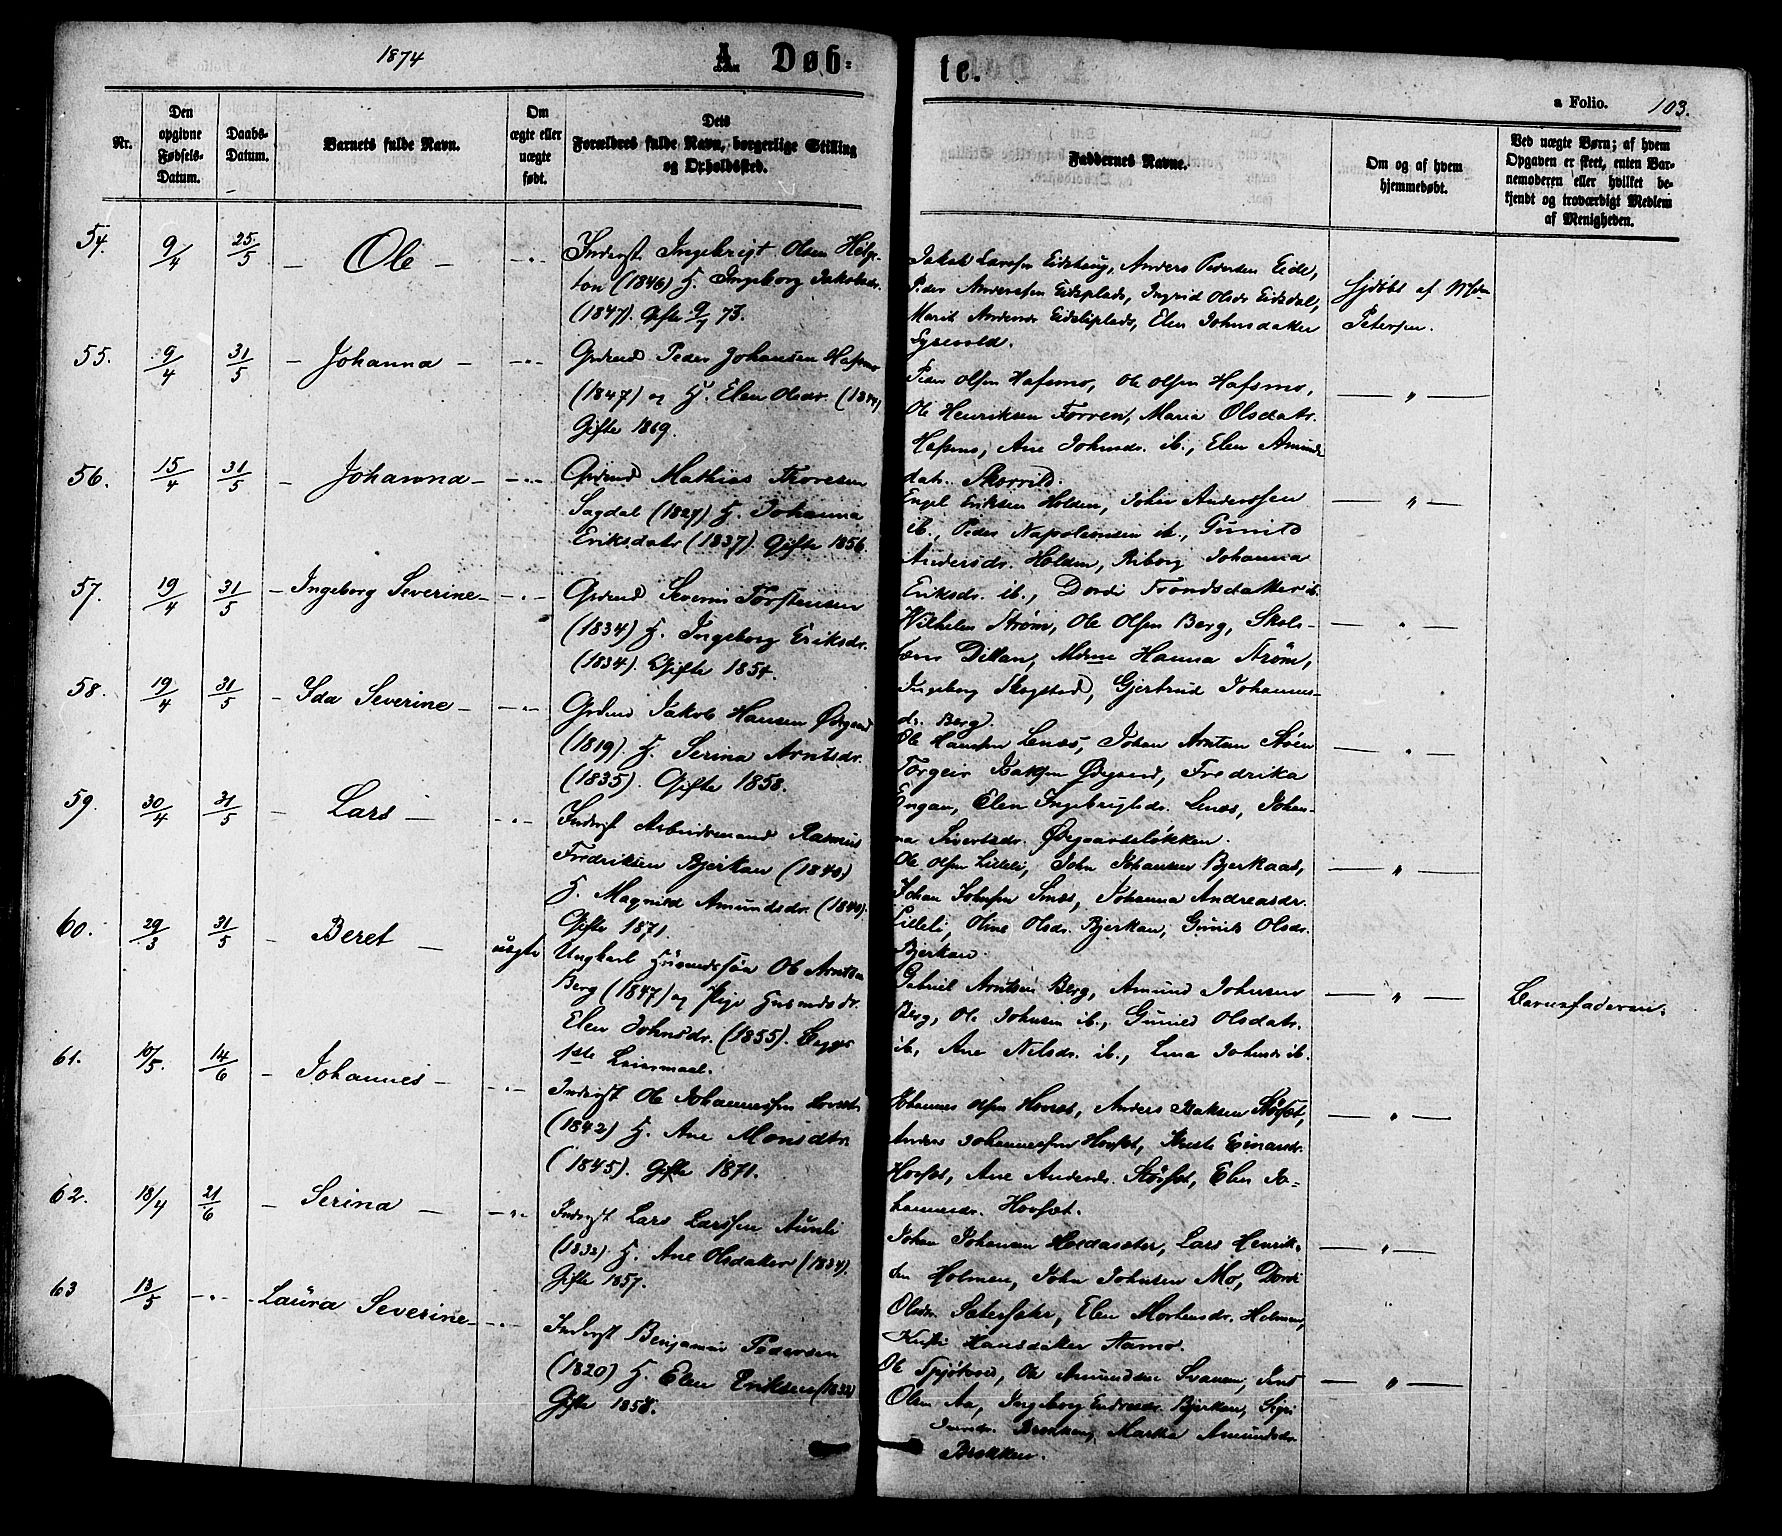 1874
A. Døb-
te.
a Folio. 103.
Nr.
Den opgivne Fødsels-Datum.
Daabs-Datum.
Barnets fulde Navn.
Om ægte eller uægte født.
Dets Forældres fulde Navn, borgerlige Stilling og Opholdssted.
Faddernes Navne.
Om og af hvem hjemmedøbt.
Ved uægte Børn; af hvem Opgaven er skeet, enten Barnemoderen eller hvilket bekjendt og troværdigt Medlem af Menigheden.
54. 9/4 25/5 – Ole – – " –
Inderst Ingebrigt Olsen
(1846) H. Ingeborg Jakobsdr.
(1847). Gifte 9/1 73.
Jakob Larssen Eidshaug, Anders Pedersen Eide,
Peder Anderssen Eidsplads, Ingrid Olsdr Eidsdal,
Marit Andersdr Eidsliplads, Elen Johnsdatter
Hjdøbt af
Petersen.
55. 9/4 31/5 – Johanna – – " –
Grdmd Peder Johansen Hafsmo
(1847) og H. Elen Olsdr. (1844)
Gifte 1869.
Peder Olsen Hafsmo, Ole Olsen Hafsmo,
Ole Henriksen Forren, Maria Olsdatr.
Hafsmo, Ane Johnsdr. ib., Elen Amunds
datr.
– " –
56. 15/4 31/5 – Johanna – – " –
Grdmd Mathias Thoresen
Sagdal (1827) H. Johanna
Eriksdatr (1837). Gifte 1856.
Engel Eriksen Holden, John Anderssen
ib., Peder Napoleonsen ib., Gunild
Andersdr. Holden, Johanna
Eriksdr. ib., Dordi Trondsdatter ib.
– " –
57. 19/4 31/5 – Ingeborg Severine – – " –
Grdmd Severin Torstensen
(1834) H. Ingeborg Eriksdr.
(1834). Gifte 1854.
Vilhelm Strøm, Ole Olsen Berg, Skole-
Dillan, Mdme Hanna Strøm,
Ingeborg Skogstad, Gjertrud Johannes-
dr. Berg.
– " –
58. 19/4 31/5 – Ida Severine – – " –
Grdmd Jakob Hansen Øvegaard
(1819) H. Serina Arntsdr.
(1835). Gifte 1858.
Ole Hanssen Lenæs, Johan Arntsen Støen
Torgeir Fredrika
Engan, Elen Ingebrigtsdr. Lenæs, Johan-
na Sivertsdr. Øvegaardsløkken.
– " –
59. 30/4 31/5 – Lars – – " –
Inderst Arbeidsmand Rasmus
Fredriksen Bjerkan (1840)
H. Magnild Amundsdr. (1840).
Gifte 1871.
Ole Olsen Lilleli, John Johansen Bjerkaas,
Johan Johnsen Snæs, Johanna Andreasdr.
Lilleli, Oline Olsdr. Bjerkan, Gunild Olsdr.
Bjerkan.
– " –
60. 29/3 31/5 – Beret – uægte
Ungkarl Husmandssøn Ole Arntsen
Berg (1847) og Pige Husmandsdr.
Elen Johnsdr. (1855). Begges
1ste Leiermaal.
Gabriel Arntsen Berg, Amund Johnsen
Berg, Ole Johnsen ib., Gunild Olsdatr.
ib., Ane Nilsdr. ib., Lina Johnsdr ib.
– " –
Barnefaderen.
61. 10/5. 14/6 – Johannes – – " –
Inderst Ole Johannessen Hovset
(1842) H. Ane Monsdtr.
(1845). Gifte 1871.
Johannes Olsen Hovset, Anders Isaksen Støfset,
Anders Johannessen Hovset, Einarsdr.
Hovset, Ane Andersdr. Støfset, Elen Jo-
hannesdr. Hovset.
– " –
62. 18/4 21/6 – Serina – – " –
Inderst Lars Larssen Aunli
(1832) H. Ane Olsdatter (1834).
Gifte 1857.
Johan Johansen Holdasæter, Lars Henrik-
sen Holmen, John Johnsen Mo, Dordi
Olsdr. Elen Mortensdr. Holmen,
Kirsti Hansdatter Aamo.
– " –
63 13/5 – " – – Laura Severine – – " –
Inderst Benjamin Pedersen
(1820) H. Elen Eriksen (1832)
Gifte 1858.
Ole Ole Amundsen Svanem, Jens
Olsen Aa, Ingeborg Endresdr. Bjerkan, Sigri
Brekken, Martha Amundsdr.
Brekken.
– " –